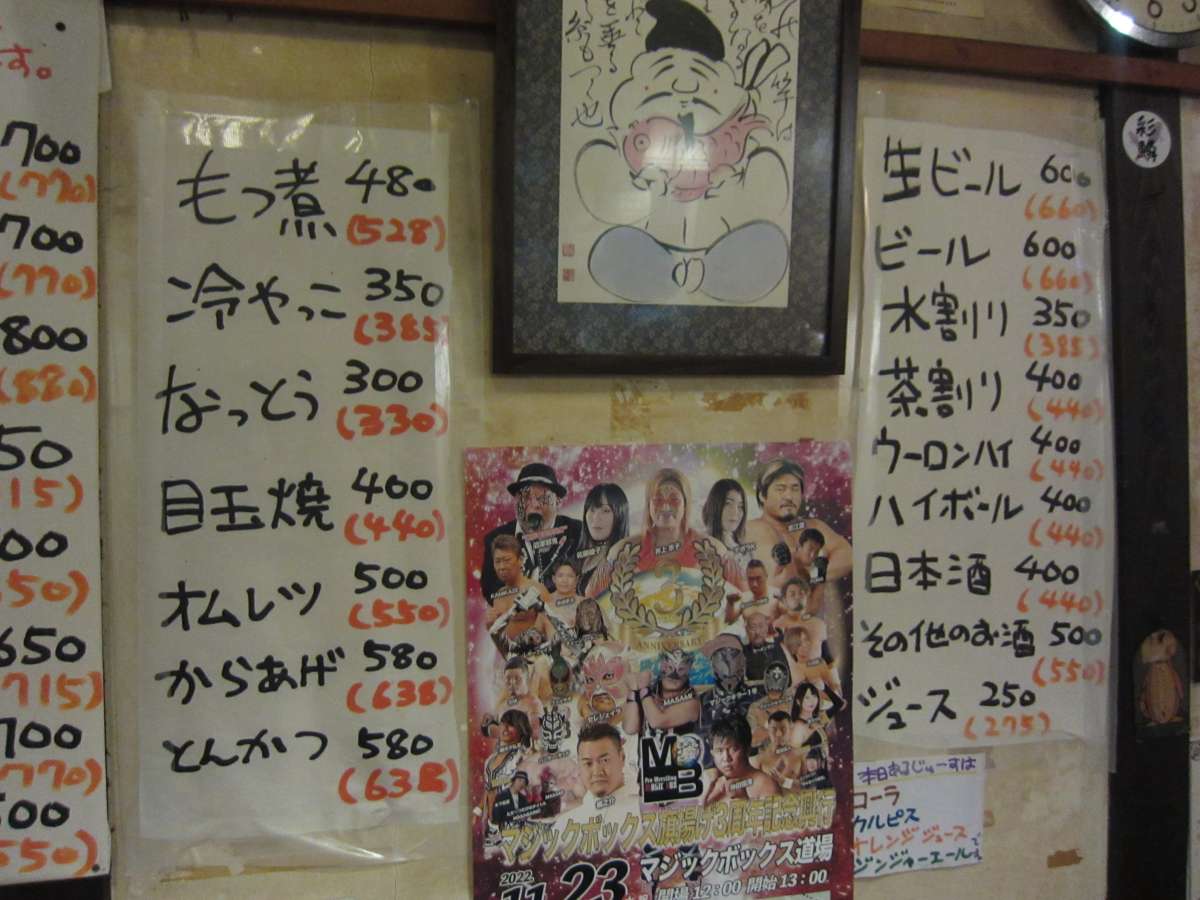 す。
700
(770)
700
(770)
800
(880)
50
15)
00
50)
650
715)
700
770)
500
550)
もつ煮 480
(528)
冷やっこ 350
(385)
なっとう 300
(330)
目玉焼 400
(440)
オムレツ 500
(550)
からあげ 580
(638)
とんかつ 580
(638)
生ビール 600
(660)
ビール 600
(660)
水割り 350
(385)
茶割り 400
(440)
ウーロンハイ 400
(440)
ハイボール 400
(440)
日本酒 400
(440)
その他のお酒 500
(550)
ジュース 250
(275)
本日あるじゅーすは
コーラ
カルピス
オレンジジュース
ジンジャーエールです
KAMIKAZE
井上京子
3
ANNIVERSARY
セレジェイラ
MASAMI
MB
Pro-Wrestling
MAGIC BOX
マジックボックス旗揚げ3周年記念興行
マジックボックス道場
2022.
11.23
開場12:00 開始13:00